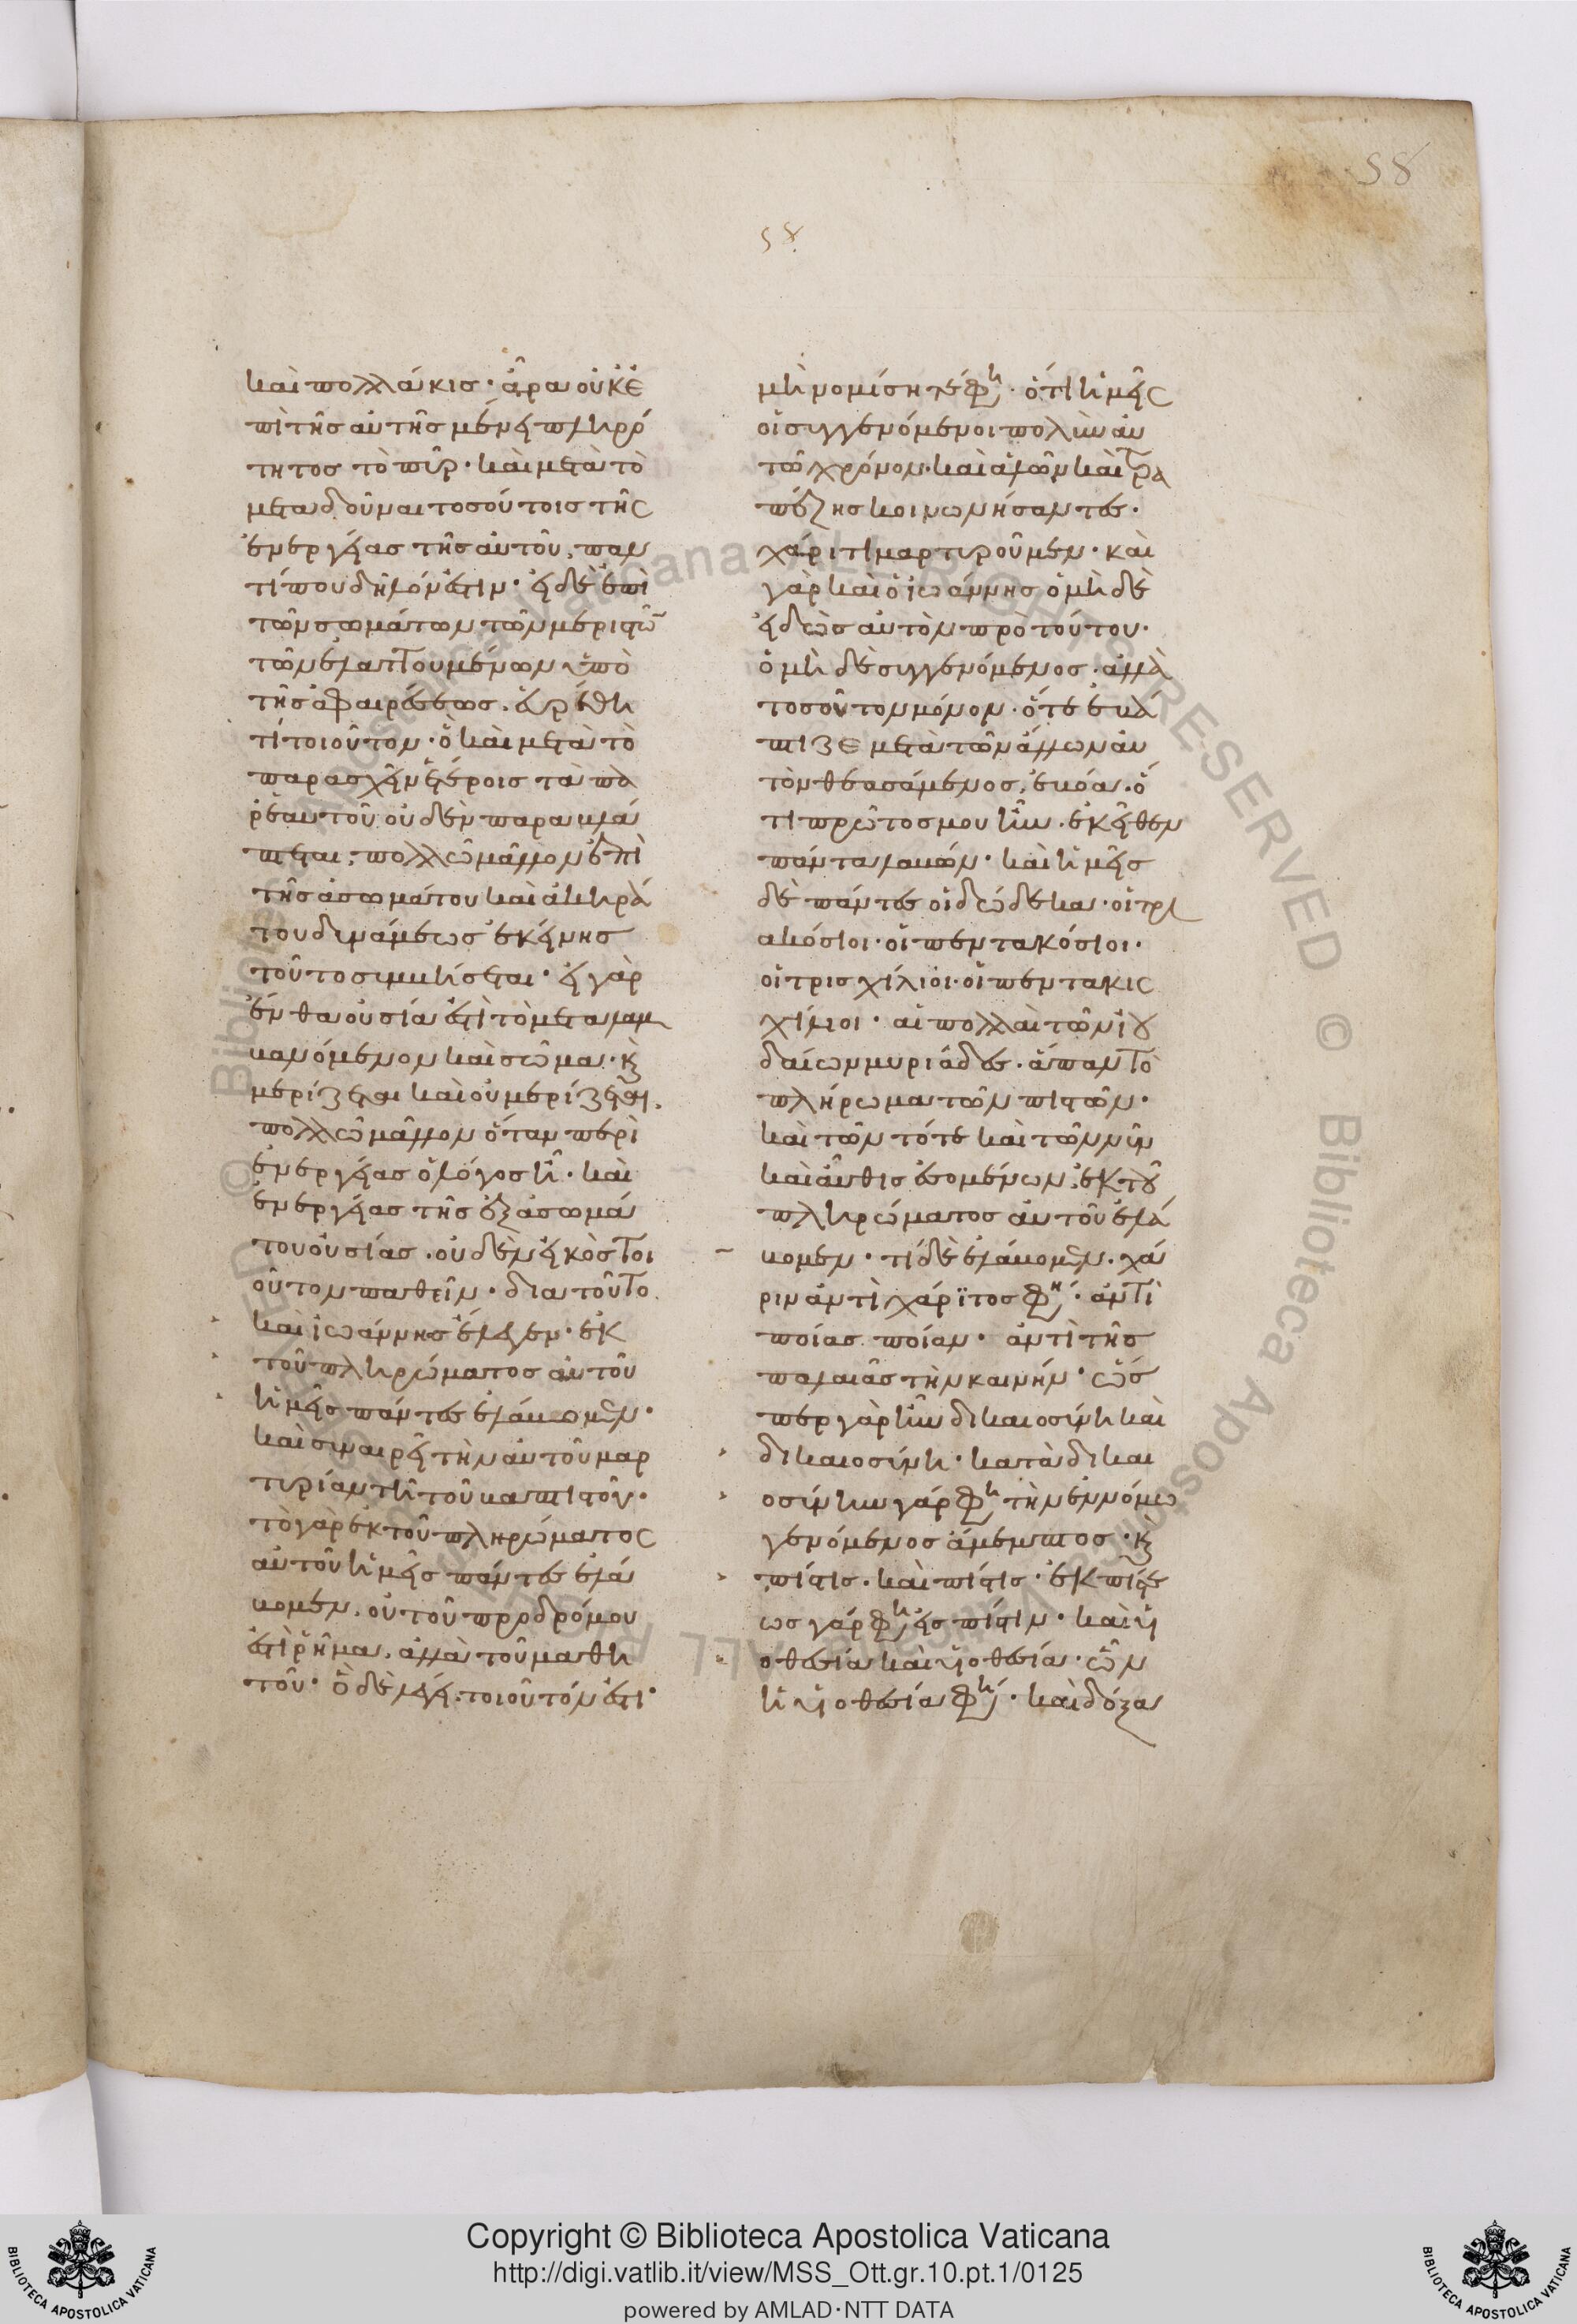 58
58
καὶ πολλάκις· ἆρα οὐκ ἐ
πὶ τῆς αὐτῆς μένει πληρό
τητος τὸ πῦρ· καὶ μετὰ τὸ
μεταδοῦναι τοσούτοις τῆς
ἐνεργείας τῆς αὐτοῦ, παν
τί που δῆλόν ἐστιν· εἰ δὲ ἐπὶ
τῶν σωμάτων τῶν μεριστῶ
τῶν ἐλαττουμένων ὑπὸ
τῆς ἀφαιρέσεως, εὑρέθη
τί τοιοῦτον· ὃ καὶ μετὰ τὸ
παρασχεῖν ἑτέροις τὰ πα
ρ' ἑαυτοῦ οὐδὲν παραβλά
πτεται, πολλῶ μᾶλλον ἐπὶ
τῆς ἀσωμάτου καὶ ἀκηρά
του δυνάμεως ἐκείνης
τοῦτο συμβήσεται· εἰ γὰρ
ἔνθα οὐσία ἐστὶ τὸ μεταλαμ
βανόμενον καὶ σῶμα· κ
μερίζεται καὶ οὐ μερίζεται,
πολλῶ μᾶλλον ὅταν περὶ
ἐνεργείας ὁ λόγος ἦ· καὶ
ἐνεργείας τῆς ἐξ ἀσωμά
του οὐσίας. οὐδὲν εἰκὸς τοι
οῦτον παθεῖν· δια τοῦτο
καὶ ἰωάννης ἔλεγεν· ἐκ
τοῦ πληρώματος αὐτοῦ
ἡμεῖς πάντες ἐλάβομεν·
καὶ συναιρεῖ τὴν αὐτοῦ μαρ
τυρίαν τῆ τοῦ βαπτιστοῦ·
τὸ γὰρ ἐκ τοῦ πληρώματος
αὐτοῦ ἡμεῖς πάντες ἐλά
βομεν, οὐ τοῦ προδρόμου
ἐστὶ ῥῆμα, ἀλλὰ τοῦ μαθη
τοῦ· ὃ δὲ λέγει, τοιοῦτόν ἐστι·
μὴ νομίσητέ φη· ὅτι ἡμεῖς
οἱ συγγενόμενοι πολὺν αὐ
τῶ χρόνον· καὶ ἁλῶν καὶ τρα
πέζης κοινωνήσαντες·
χάριτι μαρτυροῦμεν· καὶ
γὰρ καὶ ὁ ἰωάννης ὁ μὴ δὲ
εἰδὼς αὐτὸν πρὸ τούτου·
ὁ μὴ δὲ συγγενόμενος· ἀλλὰ
τοσοῦτον μόνον· ὅτε ἐβά
πτιζε μετὰ τῶν ἄλλων αὐ
τὸν θεασάμενος, ἐβόα· ὅ
τι πρῶτος μου ἦν· ἐκεῖθεν
πάντα λαβών· καὶ ἡμεῖς
δὲ πάντες οἱ δώδεκα· οἱ τρι
ακόσιοι· οἱ πεντακόσιοι·
οἱ τρισχίλιοι· οἱ πεντακις
χίλιοι· αἱ πολλαὶ τῶν ἰου
δαίων μυριάδες· ἅπαν τὸ
πλήρωμα τῶν πιστῶν·
καὶ τῶν τότε καὶ τῶν νῦν
καὶ αὖθις ἐσομένων, ἐκ τοῦ
πληρώματος αὐτοῦ ἐλά
βομεν· τί δὲ ἐλάβομεν· χά
ριν ἀντὶ χάριτος φη· ἀντὶ
ποίας ποίαν· ἀντὶ τῆς
παλαιᾶς τὴν καινήν· ὥς
περ γὰρ ἦν δικαιοσύνη καὶ
δικαιοσύνη· κατὰ δικαι
οσύνην γάρ φη τὴν ἐν νόμω
γενόμενος ἄμεμπτος· κ
πίστις· καὶ πίστις· ἐκ πίστε
ως γάρ φη εἰς πίστιν· καὶ υἱ
οθεσία καὶ υἱοθεσία· ὧν
ἡ υἱοθεσία φη· καὶ δόξα
© Biblioteca Apostolica Vaticana ALL RIGHTS RESERVED
Copyright © Biblioteca Apostolica Vaticana
http://digi.vatlib.it/view/MSS_Ott.gr.10.pt.1/0125
powered by AMLAD·NTT DATA
BIBLIOTECA APOSTOLICA VATICANA
BIBLIOTECA APOSTOLICA VATICANA